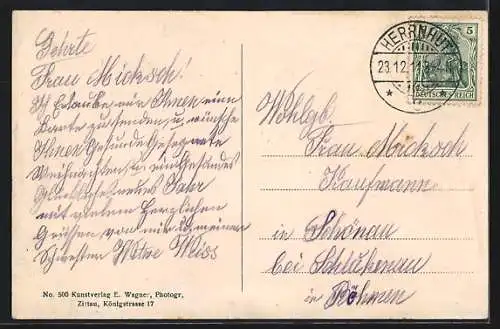 Gehrte
Frau Micksch!
Ich Erlaube mir Ihnen eine
Karte zu senden, u. wünsche
Ihnen Gesunde Gesegnete
Weihnachten u. ein Gesundes
Glückliches neues Jahr
mit vielem herzlichen
Grüssen von mir u. meinen
Schwestern Witwe Weiss
No. 500 Kunstverlag E. Wagner, Photogr.,
Zittau, Königstrasse 17
HERRNHUT
23.12.
5
DEUTSCHES REICH
Wohlgb.
Frau Micksch
Kaufmann
in Schönau
bei Schluckenau
in Böhmen